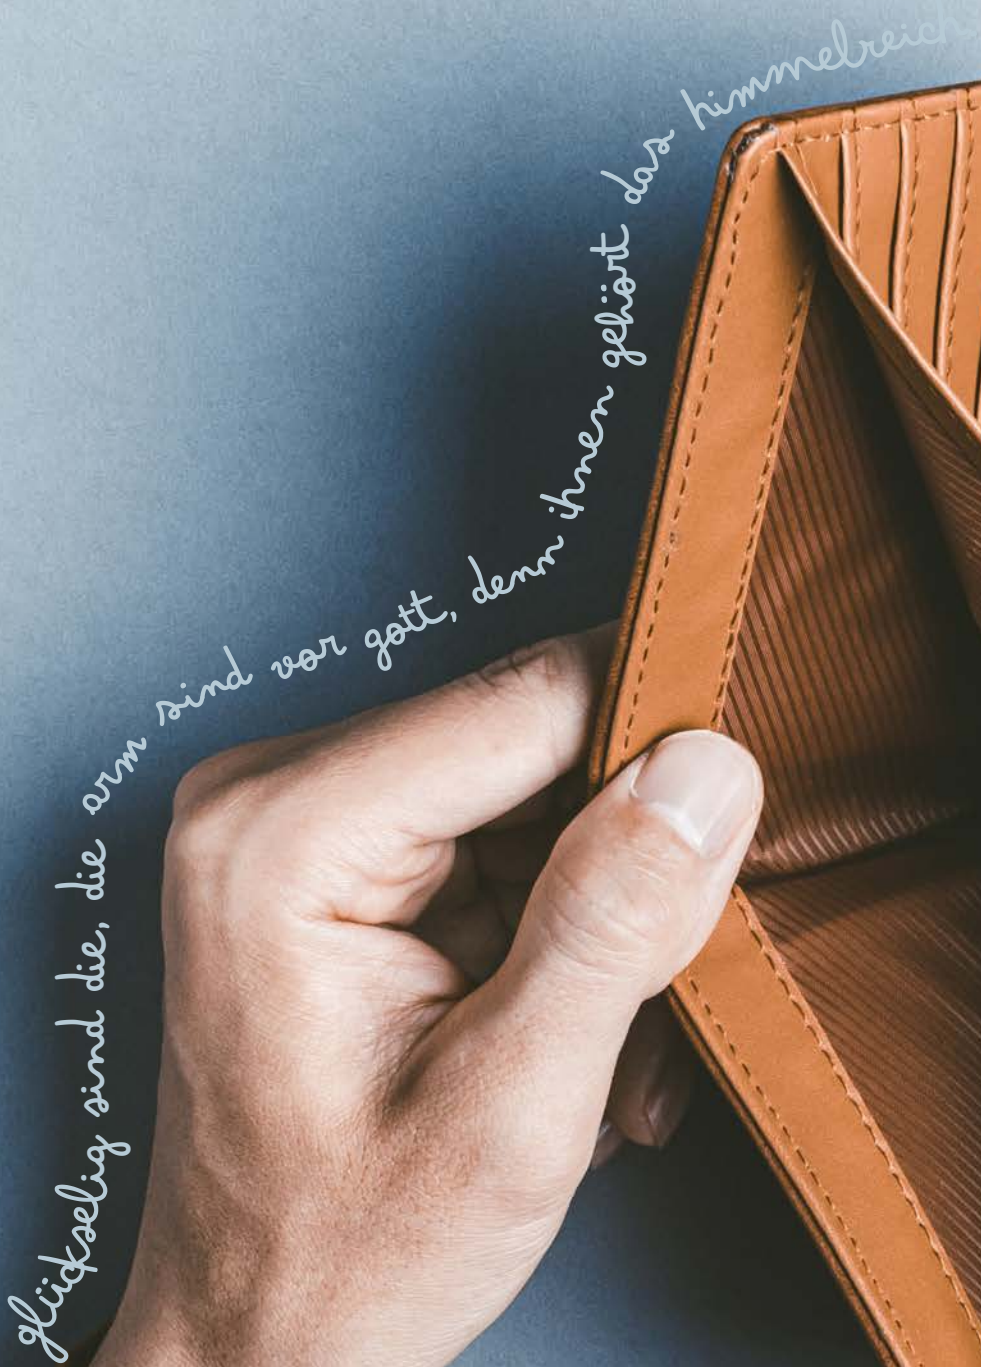 glückselig sind die, die arm sind vor gott, denn ihnen gehört das himmelreich